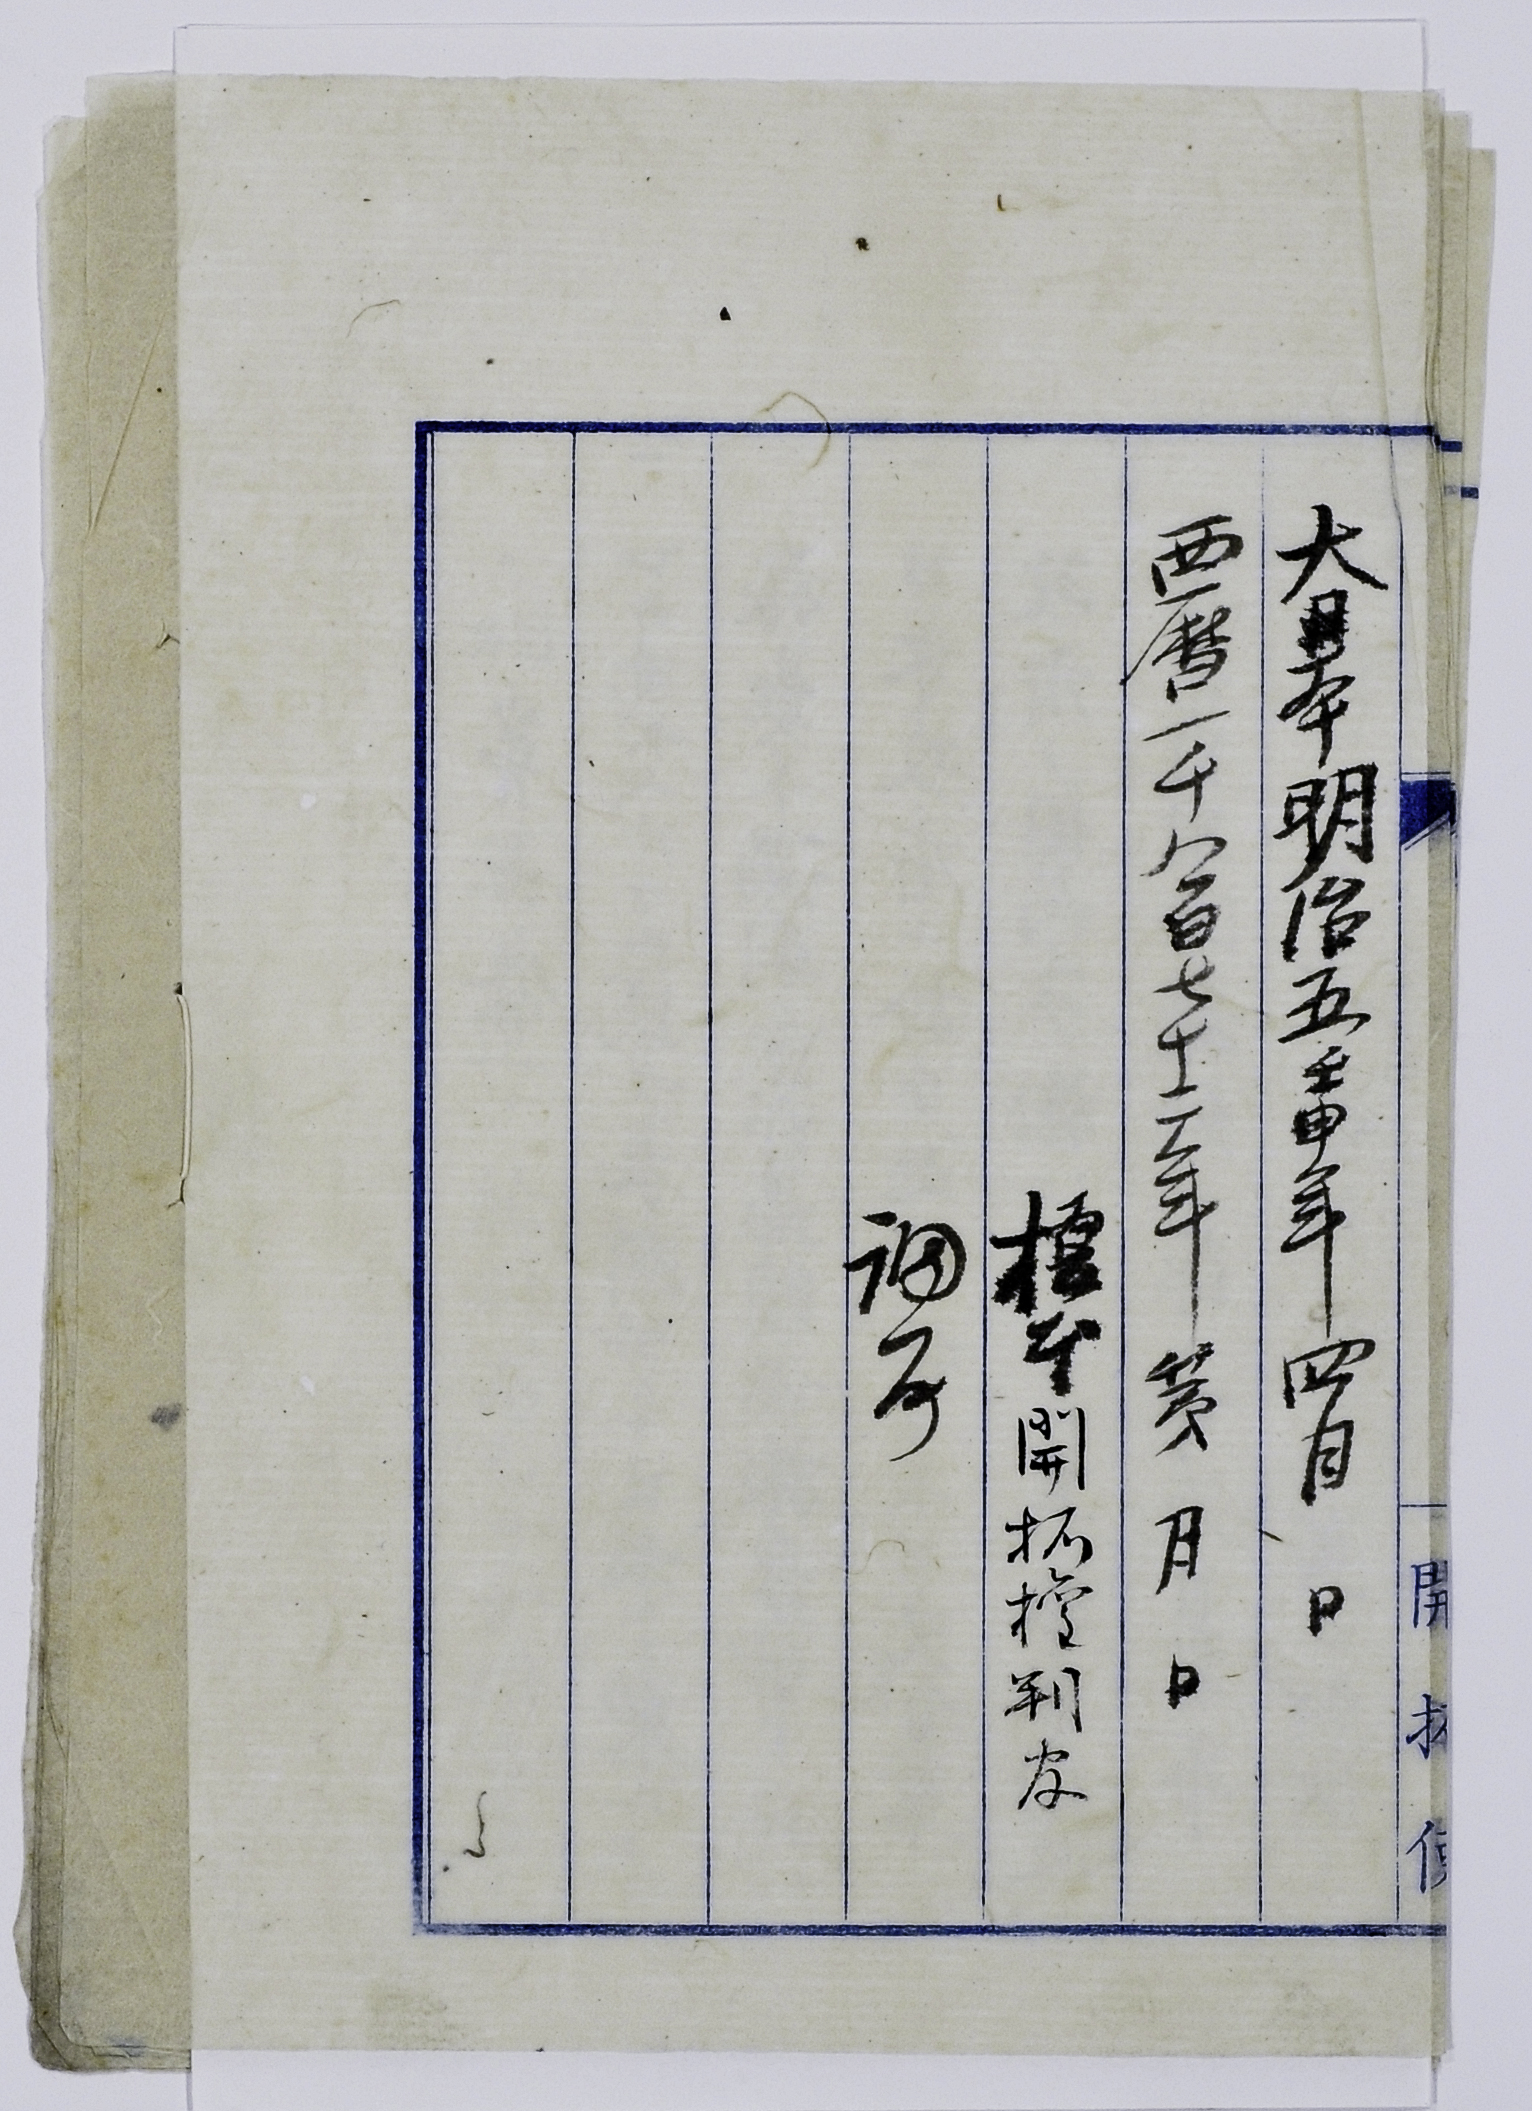 開拓使
大日本明治五壬申年四月 日
西暦一千八百七十二年第 月 日
開拓権判官